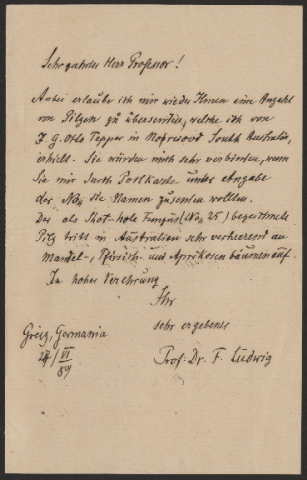 Sehr geehrter Herr Professor!
Anbei erlaube ich mir wieder Ihnen eine Anzahl
von Pilzen zu übersenden, welche ich von
J. G. Otto Tepper in Norwood South Australia,
erhielt. Sie würden mich sehr verbinden, wenn
Sie mir durch Postkarte unter Angabe
der No die Namen zusenden wollten.
Der als Shot-hole Fungus (No 25) bezeichnete
Pilz tritt in Australien sehr verheerend an
Mandel-, Pfirsich- und Aprikosenbäumen auf.
In hoher Verehrung
Ihr
sehr ergebener
Prof. Dr. F. Ludwig
Greiz, Germania
VI
89